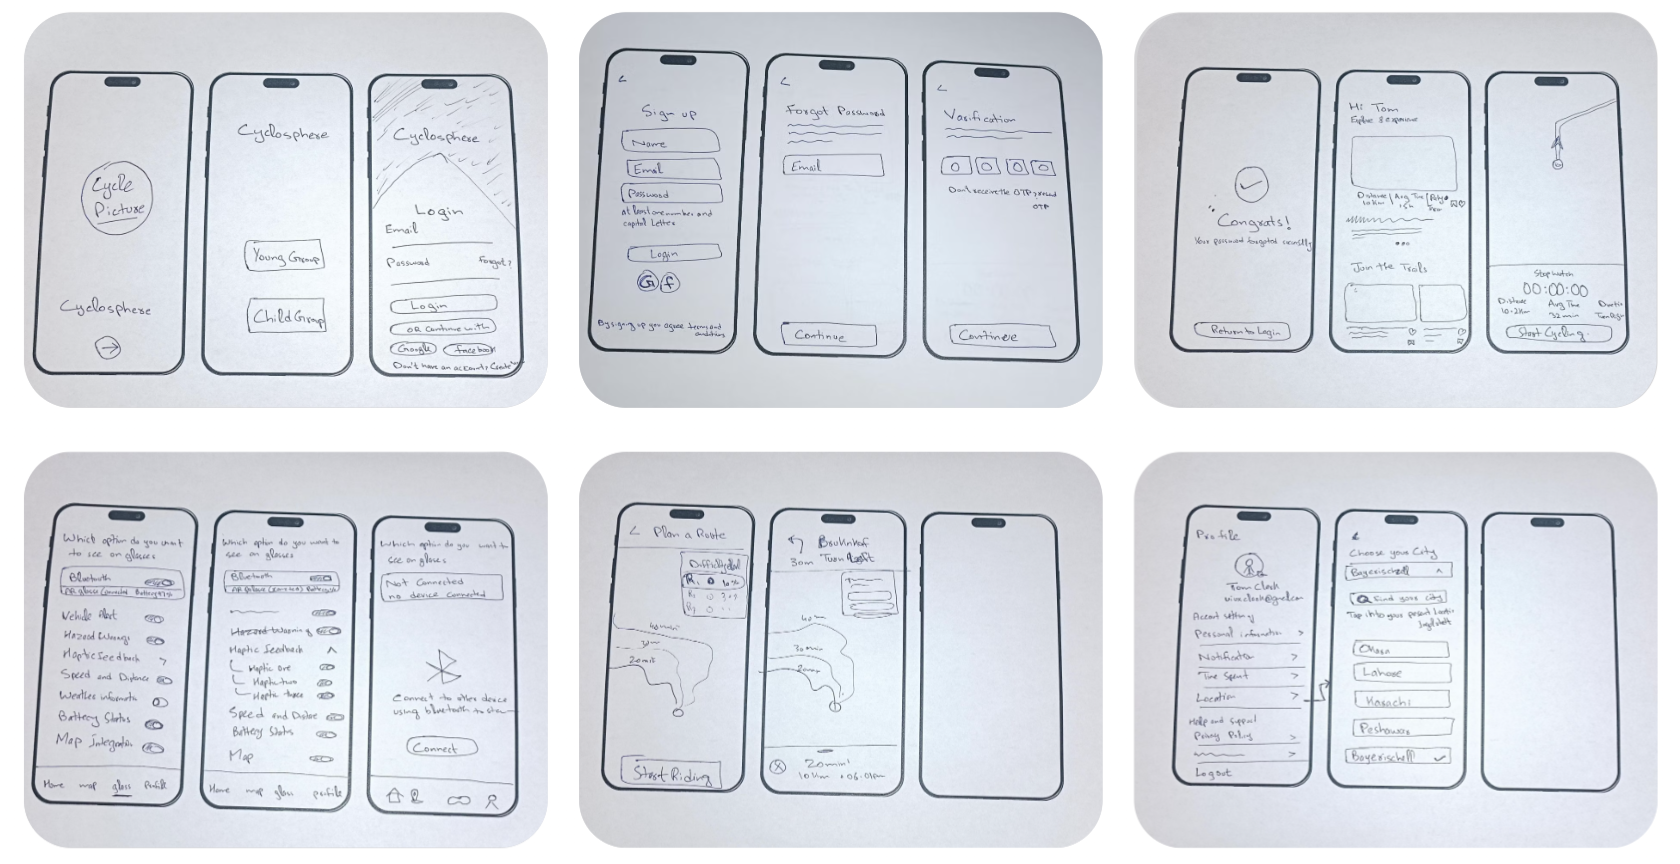 Cycle
Picture
Cyclosphere
Cyclosphere
Young Group
Child Group
Cyclosphere
Login
Email
Password Forgot?
Login
OR Continue with
Google facebook
Don't have an account? Create
Sign up
Name
Email
Password
at least one number and
capital Letters
Login
G f
By signing up you agree terms and
conditions
Forgot Password
Email
Continue
Varification
0 0 0 0
Don't receive the OTP, resend
OTP
Continue
Congrats!
Your password
Return to Login
Hi Tom
Explore & experience
Distance | Avg Time
10 km
Join the Trails
Stop watch
00:00:00
Distance Avg Time
10.2 km 32 min
Start Cycling
Which option do you want
to see on glasses
Bluetooth
AR glasses Connected
Vehicle Alert
Hazard
Haptic feedback
Speed and Distance
Weather informate
Battery Status
Map Integration
Home map glass Profile
Which option do you want to
see on glasses
Bluetooth
Hazard Warning
Haptic feedback
Haptic one
Haptic two
Haptic three
Speed and
Battery Status
Map
Home map glass profile
Which option do you want to
see on glasses
Not Connected
no device connected
Connect to other device
using bluetooth to
Connect
Plan a Route
40 min
30m
20min
Start Riding
30m Turn
40m
30min
20min
20min
10 km
Profile
Account setting
Personal information >
Notification >
Time Spent >
Location >
Help and Support
Privacy Policy >
>
Logout
Choose your City
Bayerischzell
Find your city
Lahore
Karachi
Peshawar
Bayerischzell